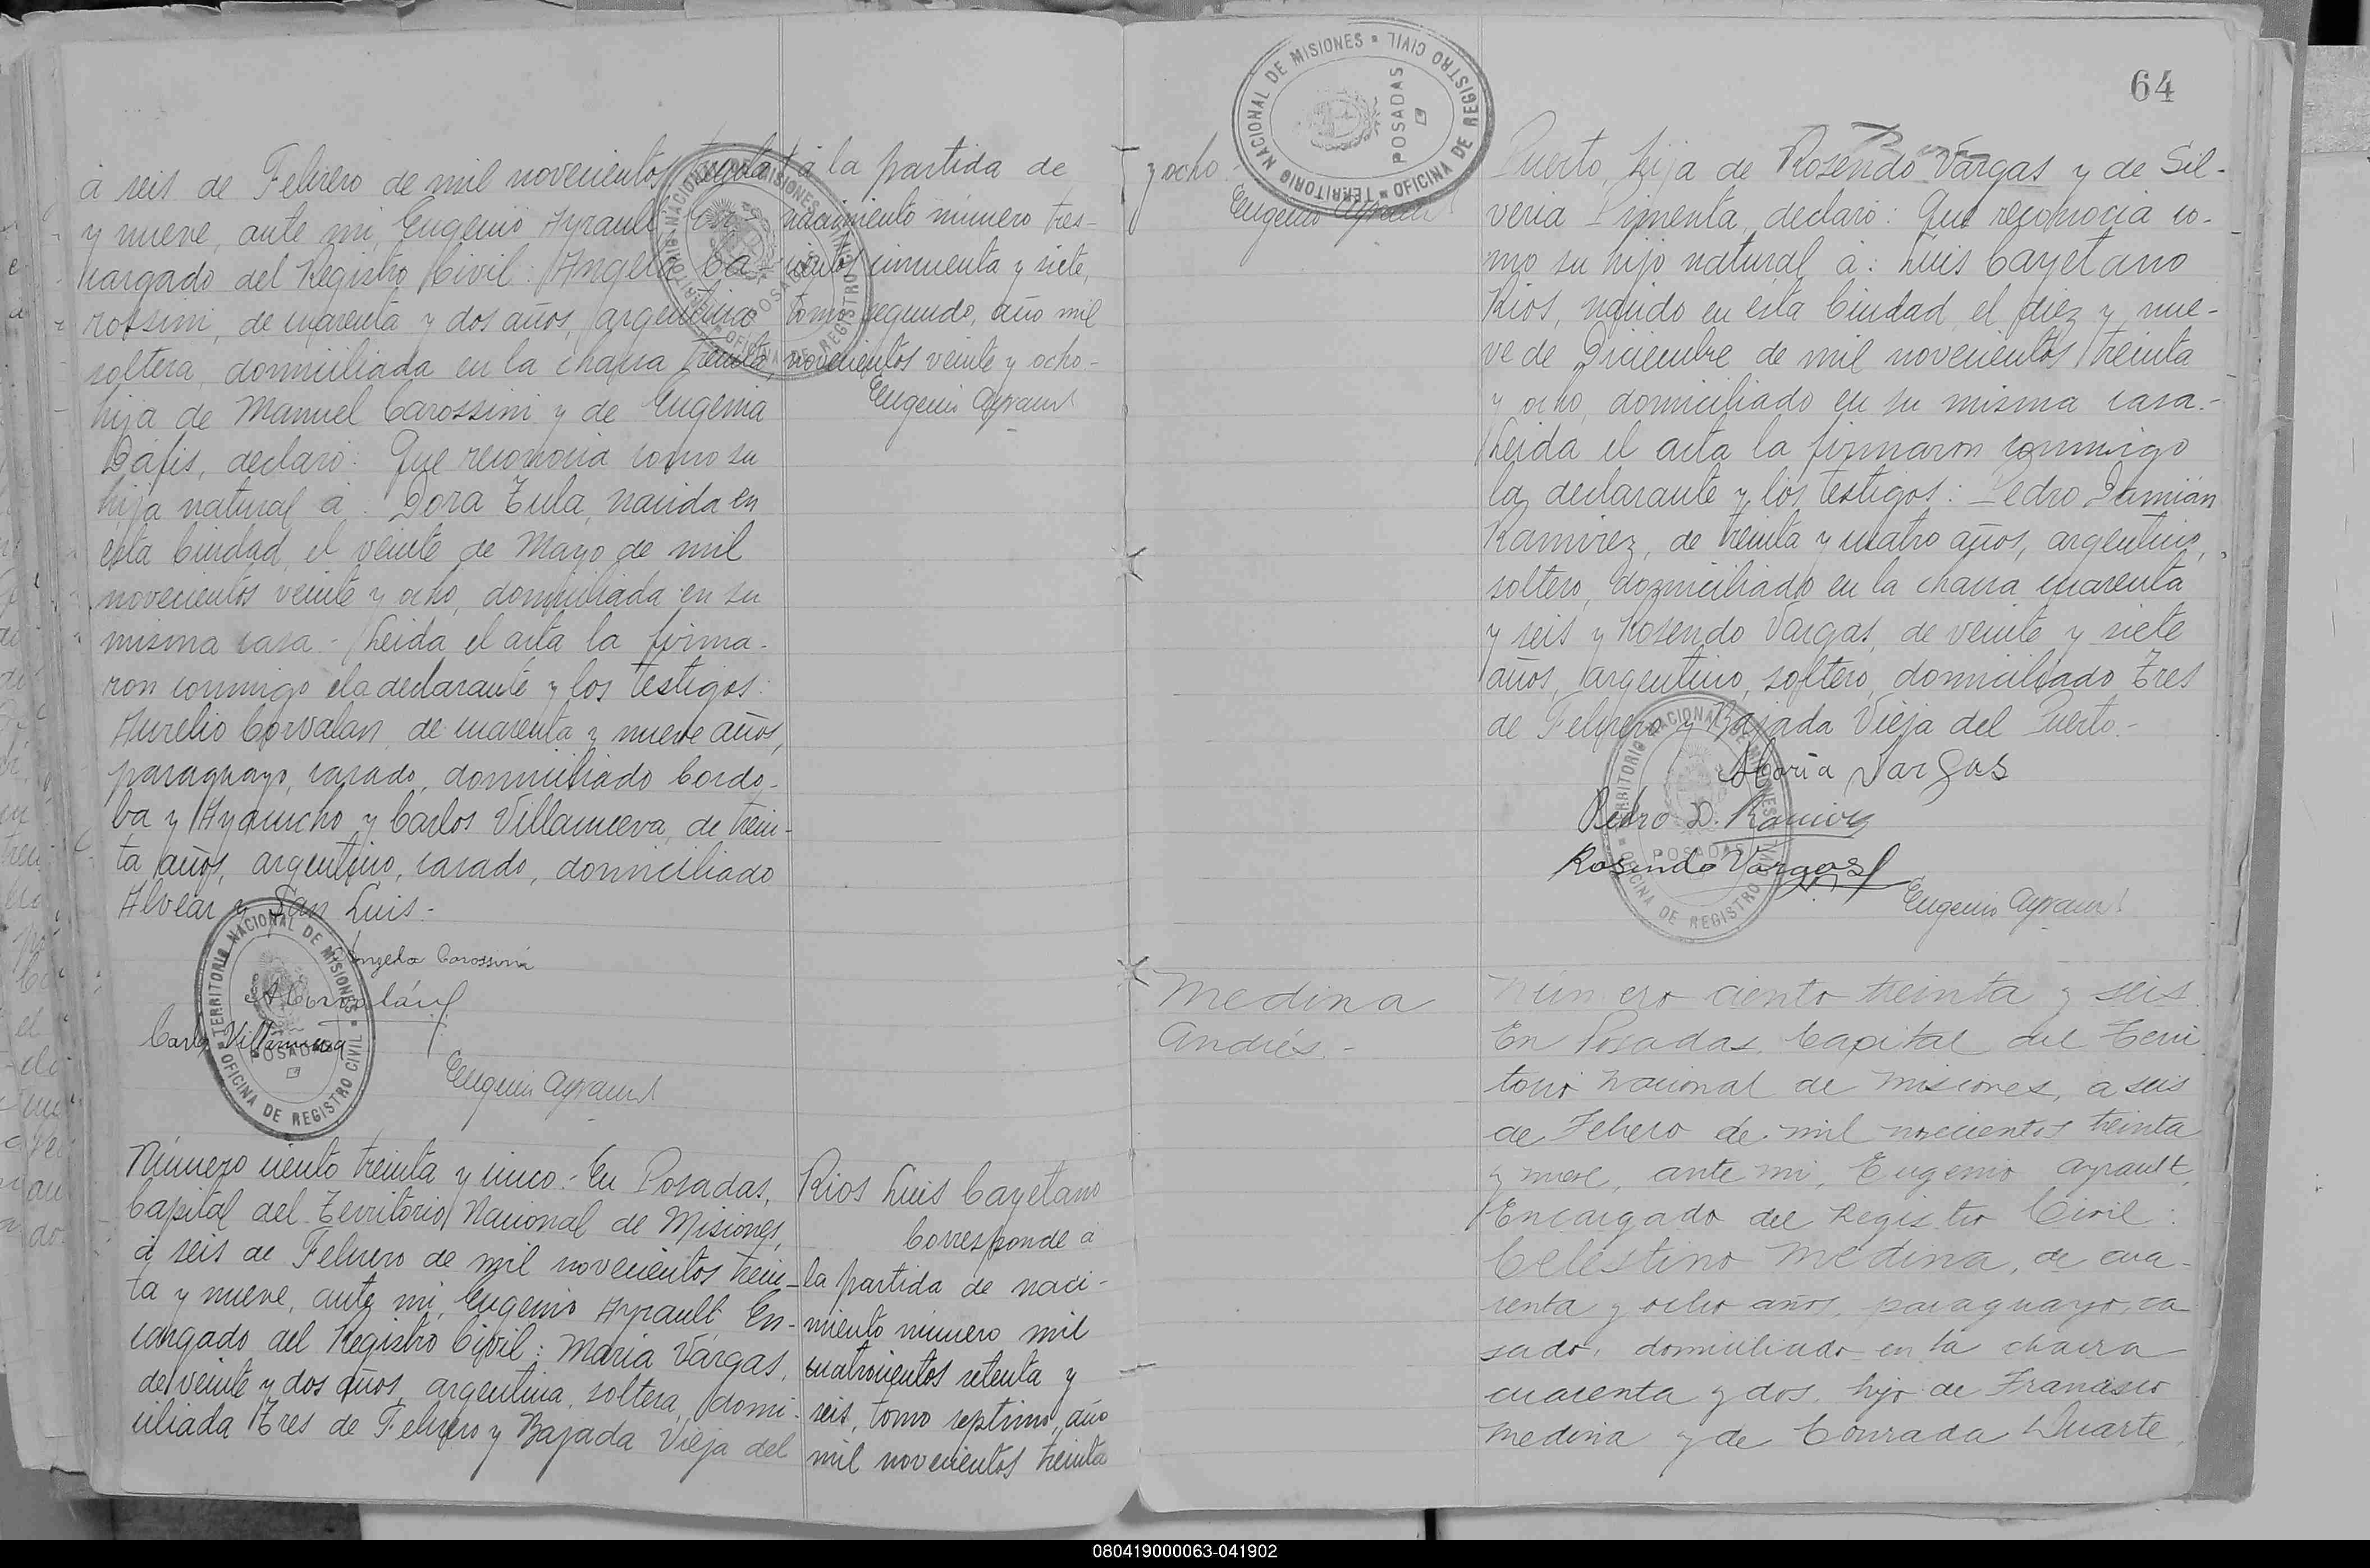 à seis de Febrero de mil novecientos treinta
y nueve, ante mi, Eugenio Ayrault En-
cargado del Registro Civil: Angela Ca-
rossini, de cuarenta y dos años, argentina
soltera, domiciliada en la chacra treinta,
hija de Manuel Carossini y de Eugenia
declaró: Que reconocia como su
hija natural à: Dora Tula, nacida en
esta Ciudad, el veinte de Mayo de mil
novecientos veinte y ocho, domiciliada en su
misma casa.- Leida el acta la firma-
ron conmigo la declarante y los testigos:
Aurelio Corvalan, de cuarenta y nueve años,
paraguayo, casado, domiciliado Cordo-
ba y Ayacucho y Carlos Villanueva, de trein-
ta años, argentino, casado, domiciliado
Alvear y San Luis.-
Angela Carossini
A Corvalán
Carlos Villanueva
Eugenio Ayrault
TERRITORIO NACIONAL DE MISIONES
POSADAS
OFICINA DE REGISTRO CIVIL
à la partida de
nacimiento número tres-
cientos cincuenta y siete,
tomo segundo, año mil
novecientos veinte y ocho-
Eugenio Ayrault
TERRITORIO NACIONAL DE MISIONES
POSADAS
OFICINA DE REGISTRO CIVIL
Número ciento treinta y cinco.- En Posadas,
Capital del Territorio Nacional de Misiones,
à seis de Febrero de mil novecientos trein-
ta y nueve, ante mi, Eugenio Ayrault En-
cargado del Registro Civil: Maria Vargas,
de veinte y dos años, argentina, soltera, domi-
ciliada Tres de Febrero y Bajada Vieja del
Rios Luis Cayetano
Corresponde à
la partida de naci-
miento número mil
cuatrocientos setenta y
seis, tomo septimo, año
mil novecientos treinta
y ocho
Eugenio Ayrault
TERRITORIO NACIONAL DE MISIONES
POSADAS
OFICINA DE REGISTRO CIVIL
64
Puerto, hija de Rosendo Vargas y de Sil-
veria Pimenta, declaró: Que reconocia co-
mo su hijo natural à: Luis Cayetano
Rios, nacido en esta Ciudad, el diez y nue-
ve de Diciembre de mil novecientos treinta
y ocho, domiciliado en su misma casa.-
Leida el acta la firmaron conmigo
la declarante y los testigos: Pedro Damián
Ramirez, de treinta y cuatro años, argentino,
soltero, domiciliado en la chacra cuarenta
y seis y Rosendo Vargas, de veinte y siete
años, argentino, soltero, domiciliado Tres
de Febrero y Bajada Vieja del Puerto.-
Maria Vargas
Pedro D. Ramirez
Rosendo Vargas
Eugenio Ayrault
TERRITORIO NACIONAL DE MISIONES
POSADAS
OFICINA DE REGISTRO CIVIL
Medina
Andrés.-
Número ciento treinta y seis
En Posadas, Capital del Terri
torio Nacional de Misiones, a seis
de Febrero de mil novecientos treinta
y nueve, ante mi, Eugenio Ayrault,
Encargado del Registro Civil:
Celestino Medina, de cua-
renta y ocho años, paraguayo, ca
sado, domiciliado en la chacra
cuarenta y dos, hijo de Francisco
Medina y de Conrada Duarte,
080419000063-041902